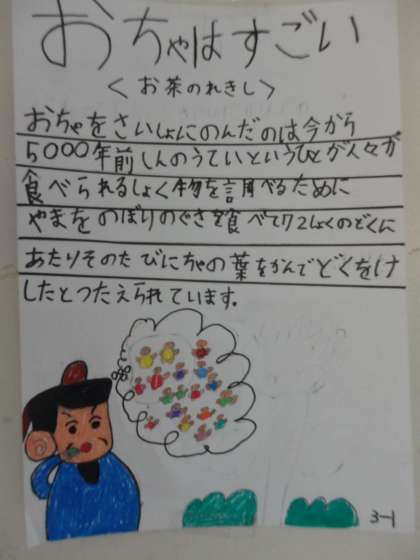 おちゃはすごい
＜お茶のれきし＞
おちゃをさいしょにのんだのは今から
5000年前しんのうていというひとが人々が
食べられるしょく物を調べるために
やまをのぼりのぐさを食べて72しょくのどくに
あたりそのたびにちゃの葉をかんでどくをけ
したとつたえられています。
3-1